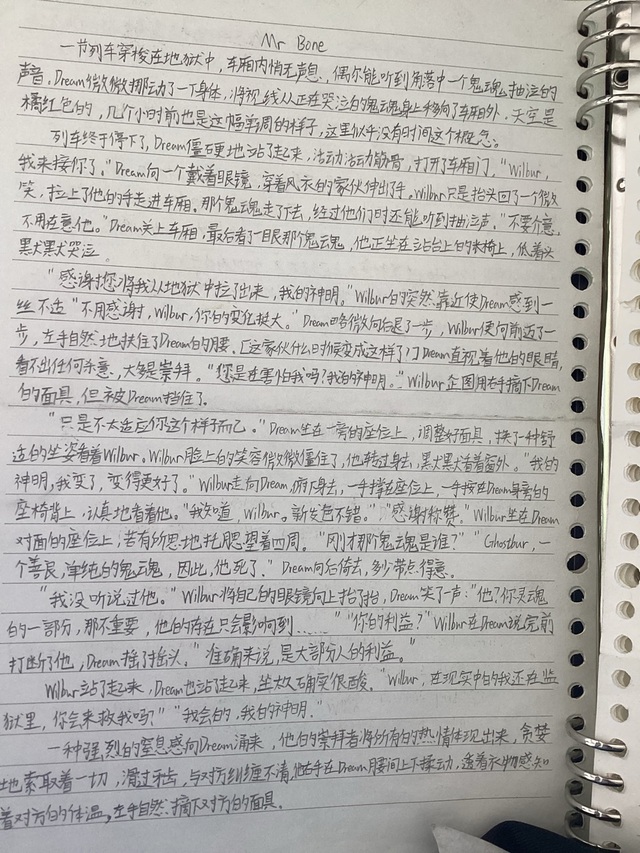 Mr Bone
一节列车穿梭在地狱中，车厢内悄无声息，偶尔能听到角落中一个鬼魂抽泣的
声音，Dream微微挪动了一下身体，将视线从正在哭泣的鬼魂身上移向了车厢外，天空是
橘红色的，几个小时前也是这幅单周的样子，这里似乎没有时间这个概念。
列车终于停下了，Dream僵硬地站了起来，活动活动筋骨，打开了车厢门，“Wilbur，
我来接你了。”Dream向一个戴着眼镜，穿着风衣的家伙伸出手，Wilbur只是抬头回了一个微
笑，拉上了他的手走进车厢。那个鬼魂走了下去，经过他们时还能听到抽泣声。“不要介意，
不用在意他。”Dream关上车厢，最后看了一眼那个鬼魂，他正坐在站台上的木椅上，低着头
默默哭泣。
“感谢您将我从地狱中拉了出来，我的神明。”Wilbur的突然靠近使Dream感到一
丝不适“不用感谢，Wilbur，你的变化挺大。”Dream略微向后退了一步，Wilbur便向前迈了一
步，左手自然地扶住了Dream的腰。[这家伙什么时候变成这样了！]Dream直视着他的眼睛，
看不出任何杀意，大多是崇拜。“您是在害怕我吗？我的神明。”Wilbur企图用右手摘下Dream
的面具，但被Dream挡住了。
“只是不太适应你这个样子而已。”Dream坐在一旁的座位上，调整好面具，换了一种舒
适的坐姿看着Wilbur。Wilbur脸上的笑容微微僵住了，他转过身去，默默看着窗外。“我的
神明，我变了，变得更好了。”Wilbur走向Dream，俯下身去，一手撑在座位上，一手按在Dream身旁的
座椅背上，认真地看着他。“我知道，Wilbur。新发色不错。”“感谢称赞。”Wilbur坐在Dream
对面的座位上，若有所思地托腮望着四周。“刚才那个鬼魂是谁？”“Ghostbur，一
个善良，单纯的鬼魂，因此，他死了。”Dream向后倚去，多少带点得意。
“我没听说过他。”Wilbur将自己的眼镜向上抬了抬，Dream笑了一声：“他？你灵魂
的一部分，那不重要，他的存在只会影响到……”“你的利益？”Wilbur在Dream说完前
打断了他，Dream摇了摇头。“准确来说，是大部分人的利益。”
Wilbur站了起来，Dream也站了起来，坐太久确实很酸。“Wilbur，在现实中的我还在监
狱里，你会来救我吗？”“我会的，我的神明。”
一种强烈的窒息感向Dream涌来，他的崇拜者将所有的热情体现出来，贪婪
地索取着一切，滑过牙齿，与对方纠缠不清，他右手在Dream腰间上下揉动，透着衣物感知
着对方的体温，左手自然摘下对方的面具。